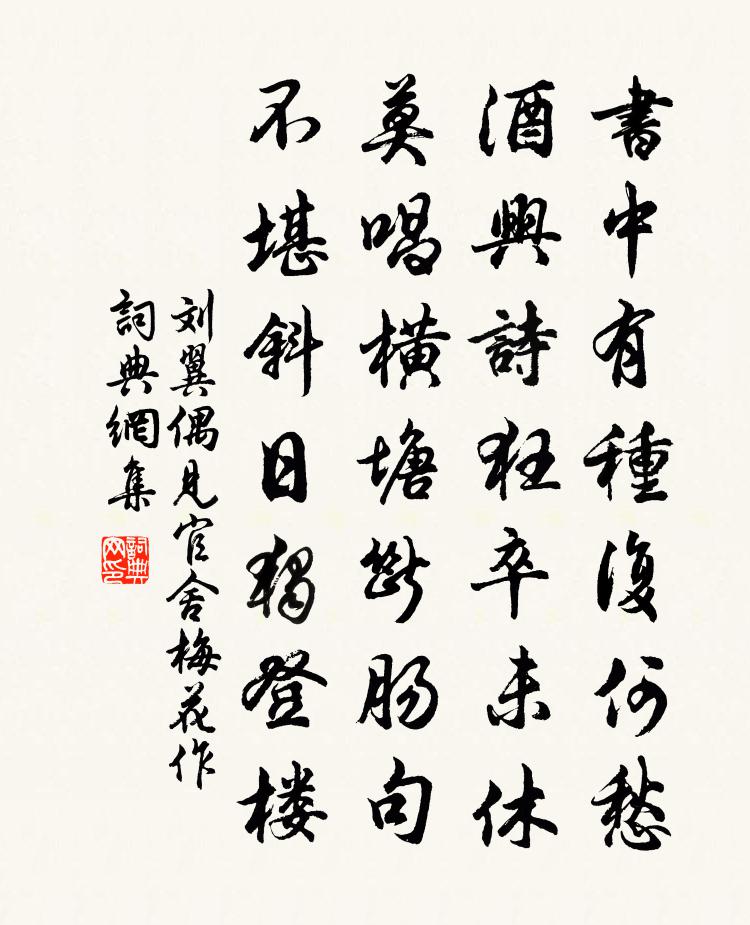 書中有種復何愁
酒興詩狂卒未休
莫唱橫塘斷腸句
不堪斜日獨登楼
刘翼偶見官舍梅花作
詞典網集
詞典网印